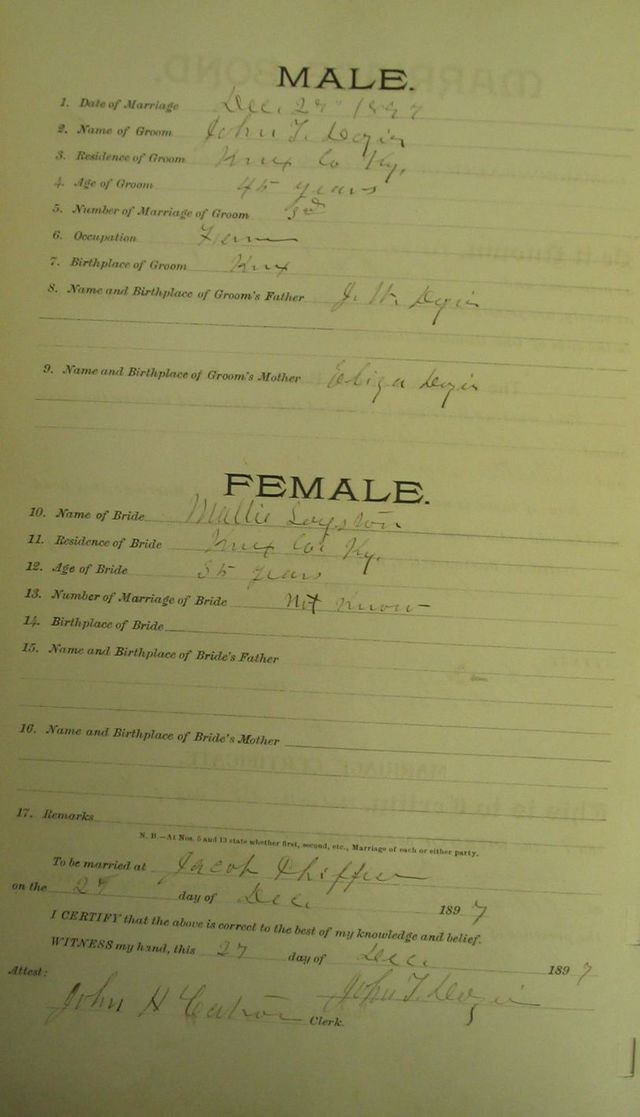 MALE.
1. Date of Marriage Dec. 27" 1897
2. Name of Groom John T. Dozier
3. Residence of Groom Knox Co Ky.
4. Age of Groom 45 years
5. Number of Marriage of Groom 3rd
6. Occupation Farmer
7. Birthplace of Groom Knox
8. Name and Birthplace of Groom's Father J. W. Dozier
9. Name and Birthplace of Groom's Mother Eliza Dozier
FEMALE.
10. Name of Bride Mallie
11. Residence of Bride Knox Co. Ky.
12. Age of Bride 35 years
13. Number of Marriage of Bride Not Know
14. Birthplace of Bride
15. Name and Birthplace of Bride's Father
16. Name and Birthplace of Bride's Mother
17. Remarks
N. B.—At Nos. 5 and 13 state whether first, second, etc., Marriage of each or either party.
To be married at Jacob
on the 27 day of Dec. 1897
I CERTIFY that the above is correct to the best of my knowledge and belief.
WITNESS my hand, this 27 day of Dec. 1897
Attest: John T. Dozier
John H Catron Clerk.